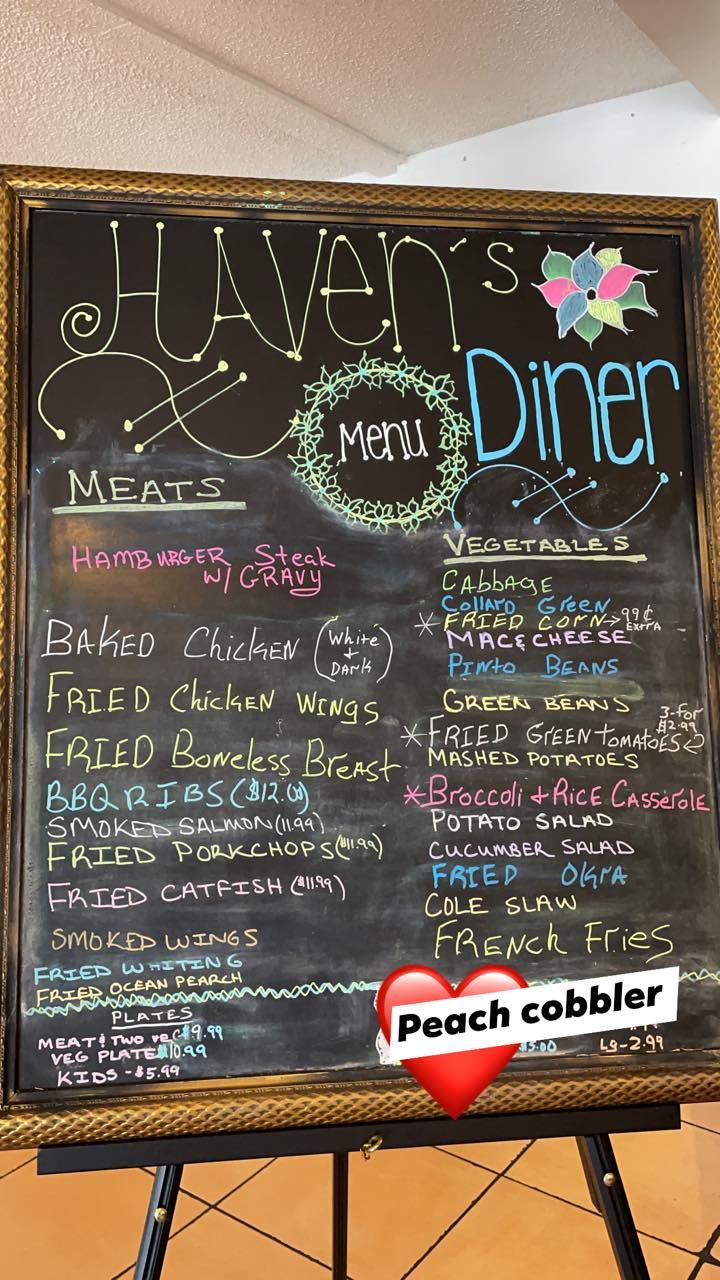 HAVEN'S
Diner
Menu
MEATS
HAMBURGER Steak
W/ GRAVY
BAKED ChickEN (White + DARK)
FRIED ChickEN WINGS
FRIED BoNeless BreAst
BBQ RIBS ($12.00)
SMOKED SALMON (11.99)
FRIED PORKCHOPS ($11.99)
FRIED CATFISH ($11.99)
SMOKED WINGS
FRIED WHITING
FRIED OCEAN PEARCH
VEGETABLES
CAbbAGE
CollARD GreeN
* FRIED CORN → 99¢ EXTRA
MAC & CHEESE
PiNto BEANS
GREEN BEANS
* FRIED GREEN tomAtoES 3-for $2.99
MASHED POTATOES
* Broccoli + RICE CASSEROLE
POTATO SALAD
CUCUMBER SALAD
FRIED OkrA
COLE SLAW
FRENCH FriES
PLATES
MEAT & TWO veG $9.99
VEG PLATE $10.99
KIDS - $5.99
Peach cobbler
Lg-2.99